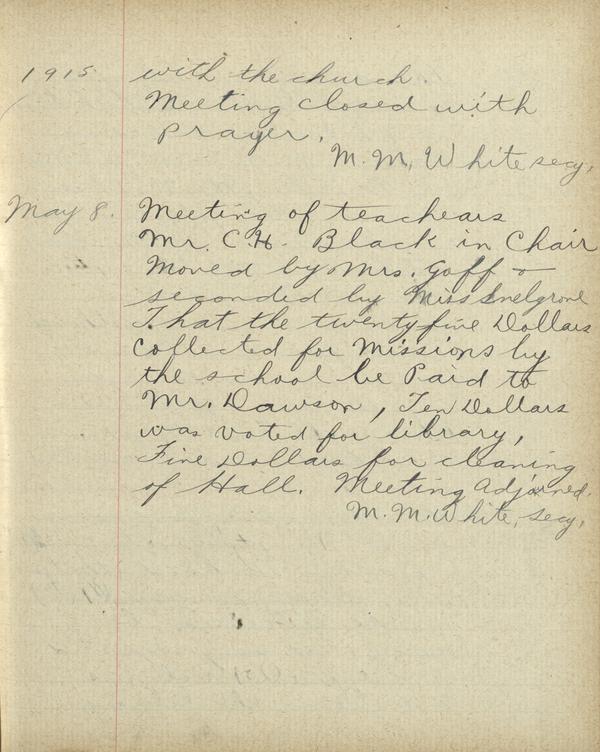 1915 with the church.
Meeting closed with
prayer.
M. M. White secy,
May 8. Meeting of teachears
Mr. C. H. Black in Chair
Moved by Mrs. Goff &
seconded by Miss Snelgrove
That the twentyfive Dollars
collected for Missions by
the school be Paid to
Mr. Dawson, Ten Dollars
was voted for library,
Five Dollars for cleaning
of Hall. Meeting Adjorned.
M. M. White, secy,